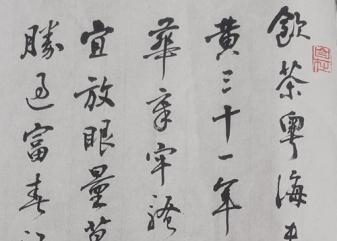 飲茶粵海
黄三十一年
華章牢騷
宜放眼量
勝過富春